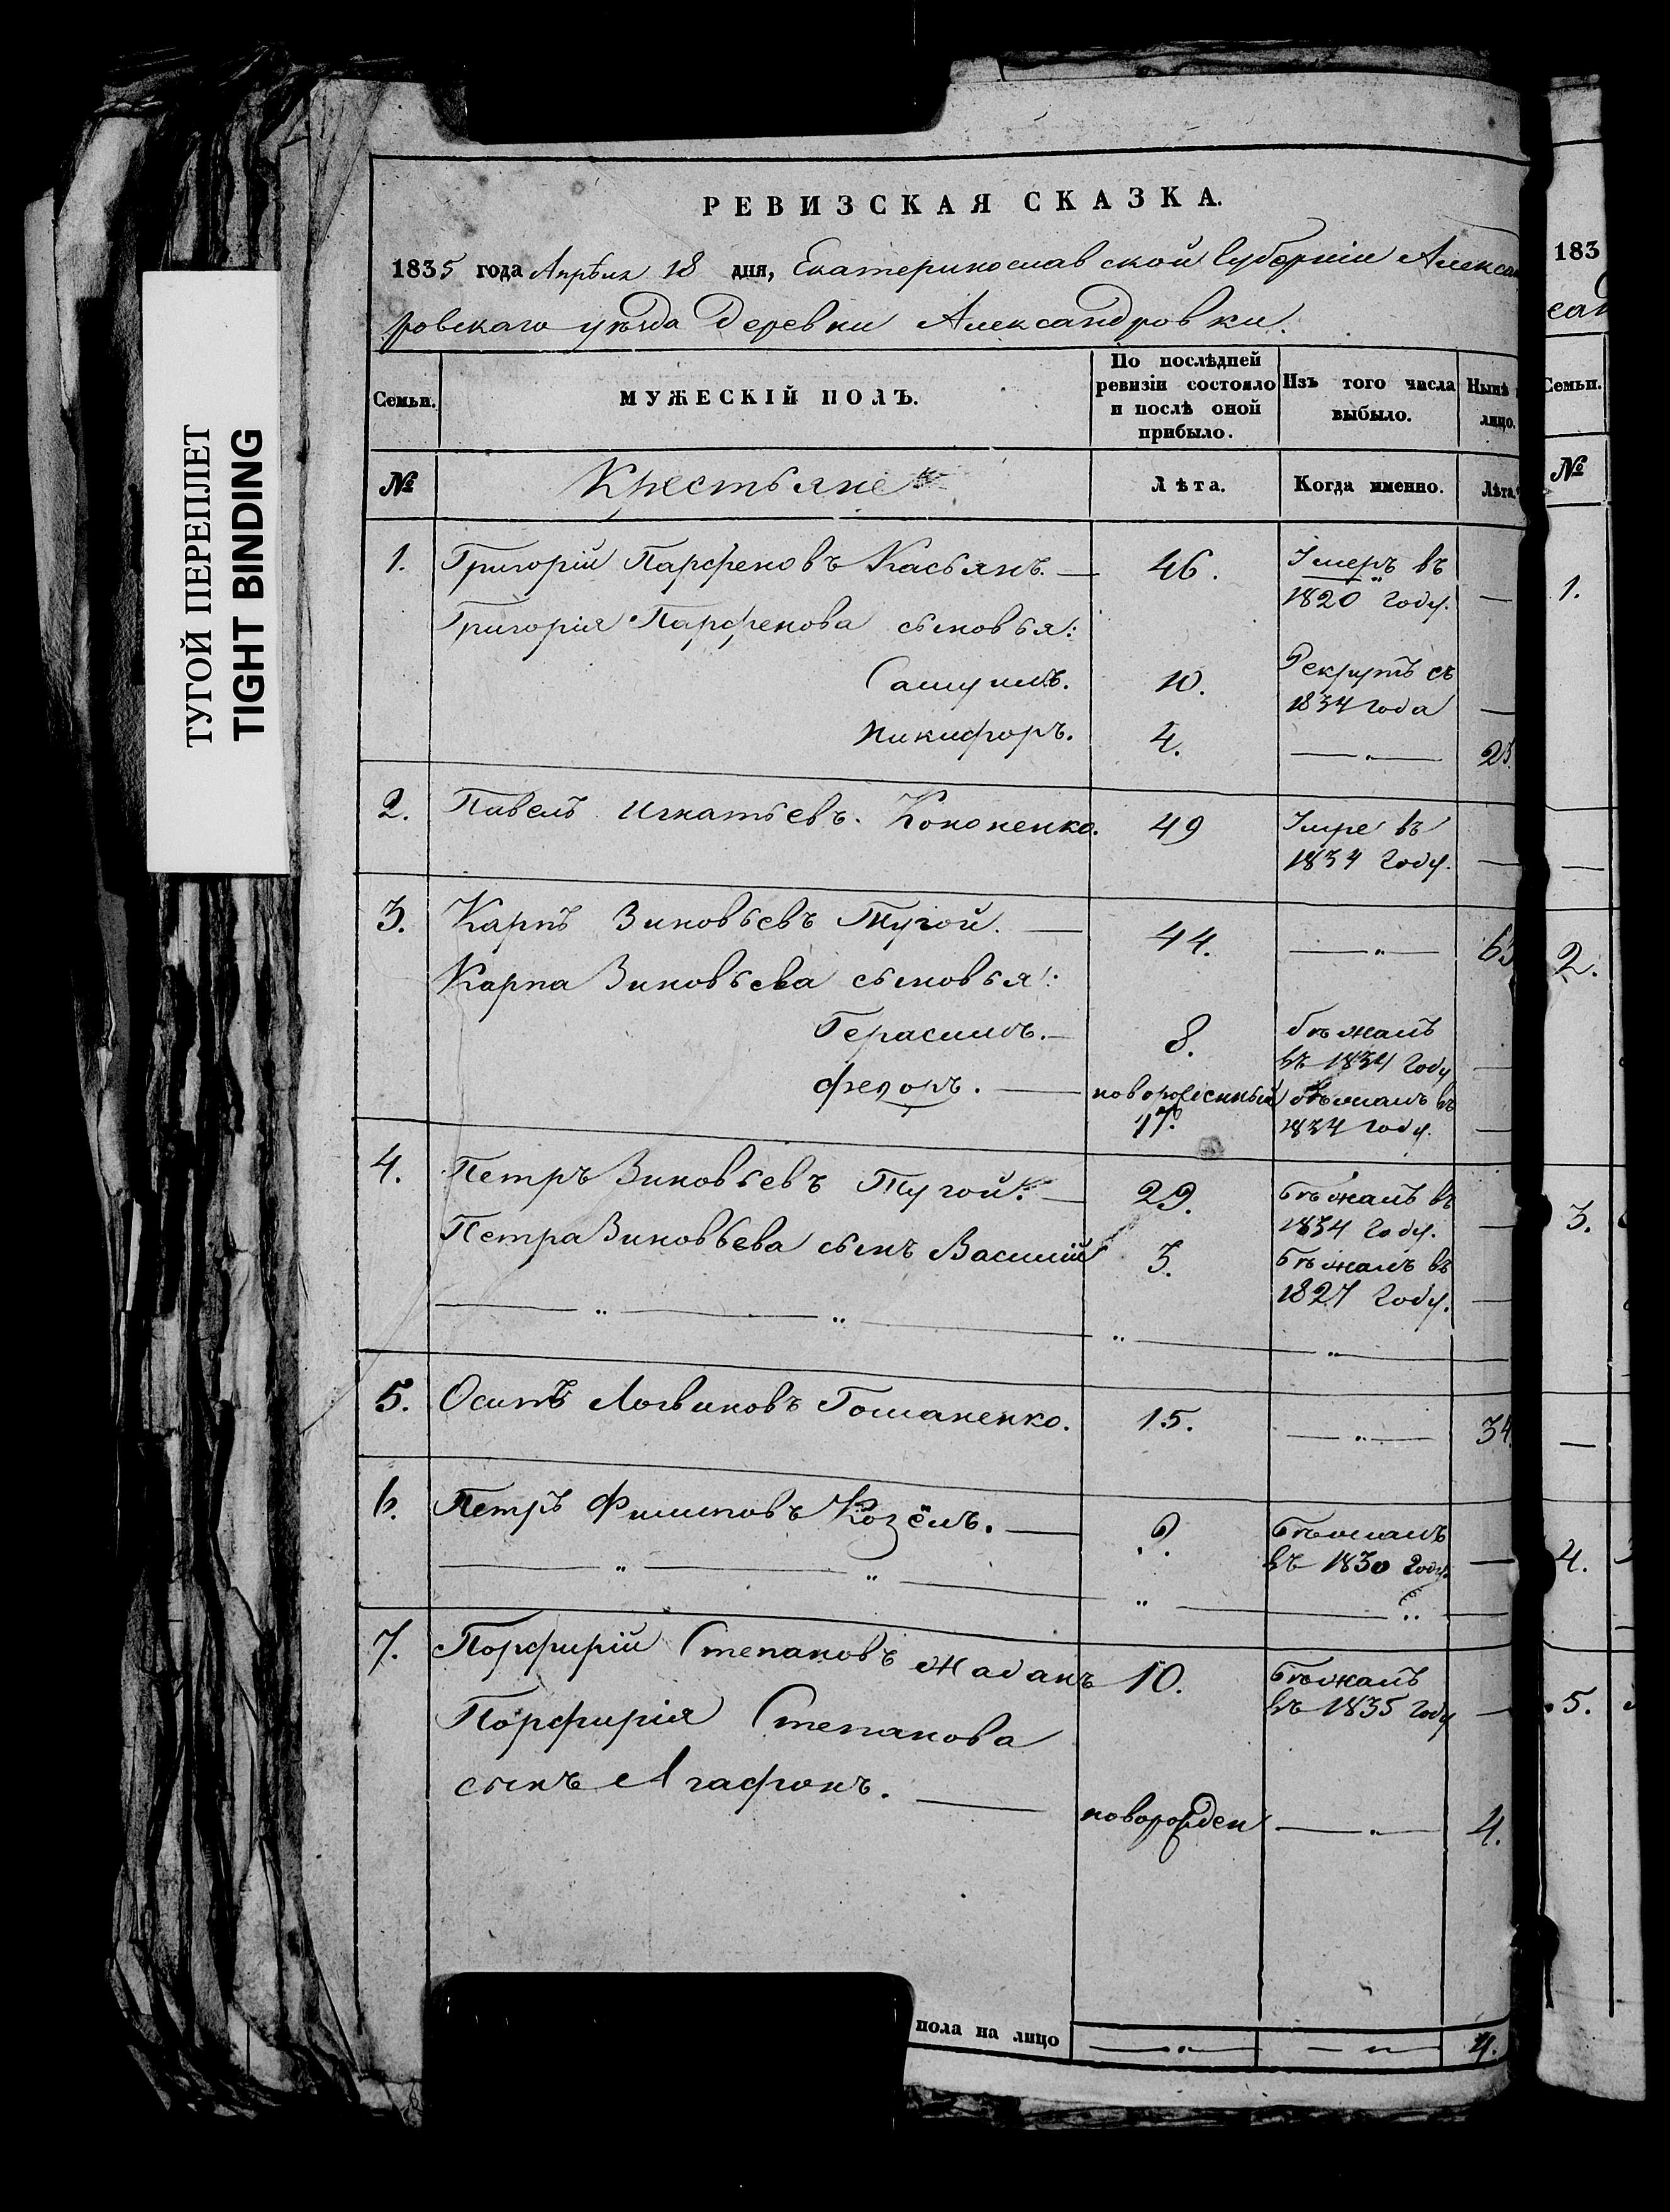 ТУГОЙ ПЕРЕПЛЕТ
TIGHT BINDING
РЕВИЗСКАЯ СКАЗКА.
1835 года Апрѣля 18 дня, Екатеринославской Губерніи Алексан
ровскаго уѣзда Деревни Александровки.
Семьи.
МУЖЕСКІЙ ПОЛЪ.
По послѣдней
ревизіи состояло
и послѣ оной
прибыло.
Изъ того числа
выбыло.
Нынѣ
лицо.
№
Крестьяне
Лѣта.
Когда именно.
Лѣта.
1. Григорій Парфеновъ Касьянъ. — 46. Умеръ въ
1820 году. —
Григорія Парфенова сыновья:
Самуилъ. 10. Рекрутъ съ
1834 года —
Никифоръ. 4. — „ — 23.
2. Павелъ Игнатьевъ Кононенко. 49 Умре въ
1834 году. —
3. Карпъ Зиновьевъ Тугой. — 44. — „ — 63
Карпа Зиновьева сыновья:
Герасимъ. — 8. бѣжалъ
въ 1834 году —
Федоръ. — новорожденный бѣжалъ въ
17. 1834 году. —
4. Петръ Зиновьевъ Тугой. — 29. бѣжалъ въ
1834 году. —
Петра Зиновьева сынъ Василій 3. бѣжалъ въ
1827 году. —
— „ — „ — „ — „ —
5. Осипъ Логвиновъ Гоманенко. 15. — „ — 34.
6. Петръ Филиповъ Козёлъ. — 9. бѣжалъ
въ 1830 году. —
— „ — „ — „ — „ —
7. Порфирій Степановъ Жаданъ 10. бѣжалъ
въ 1835 году —
Порфирія Степанова
сынъ Агафонъ. — новорожден — „ — 4.
пола на лицо — „ — — „ — 4.
183
Семьи.
№
1.
—
2.
3.
—
4.
5.